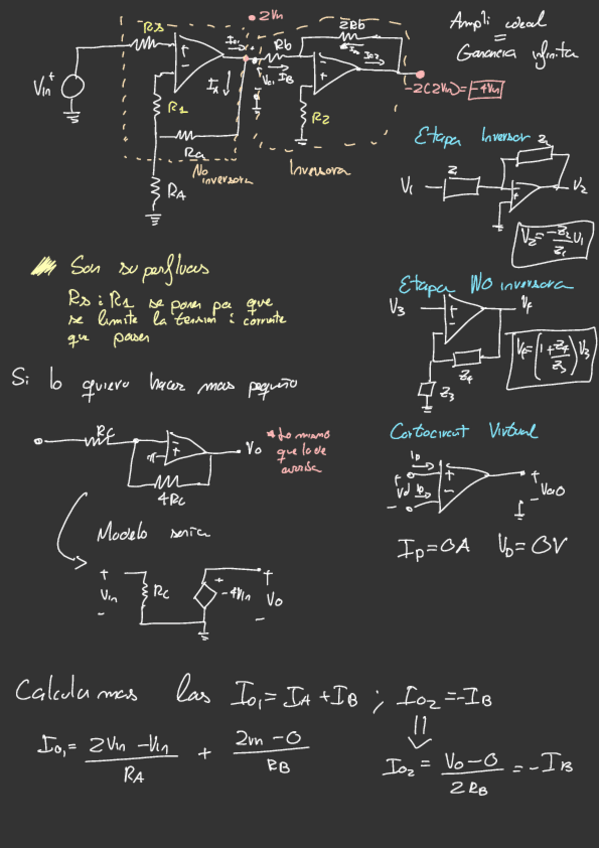 Rs
2Vin
Io1
Rb
2Rb
Io2
Vin
+
IA
Vo1
IB
R1
Ra
RA
R2
No
inversora
Inversora
-2(2Vin)=-4Vin
Ampli ideal
=
Ganancia infinita
Etapa Inversor
V1
Z1
V2
V2 = -Z2/Z1 V1
Son superfluas
Rs i R1 se ponen pa que
se limite la tension i corriente
que pasen
Etapa No inversora
V3
Vf
Z4
Z3
Vf=(1+Z4/Z3)V3
Si lo quiero hacer mas pequeño
Rc
4Rc
Vo
*Lo mismo
que lo de
arriba
Cortocircuit Virtual
ID
+
Vd
ID
-
+
Vo
-
IP=0A VD=0V
Modelo seria
+
Vin
-
Rc
+
-4Vin
+
Vo
-
Calculamos las Io1=IA+IB; Io2=-IB
Io1= 2Vin-Vin/RA + 2Vin-0/RB
Io2= Vo-0/2RB =-IB